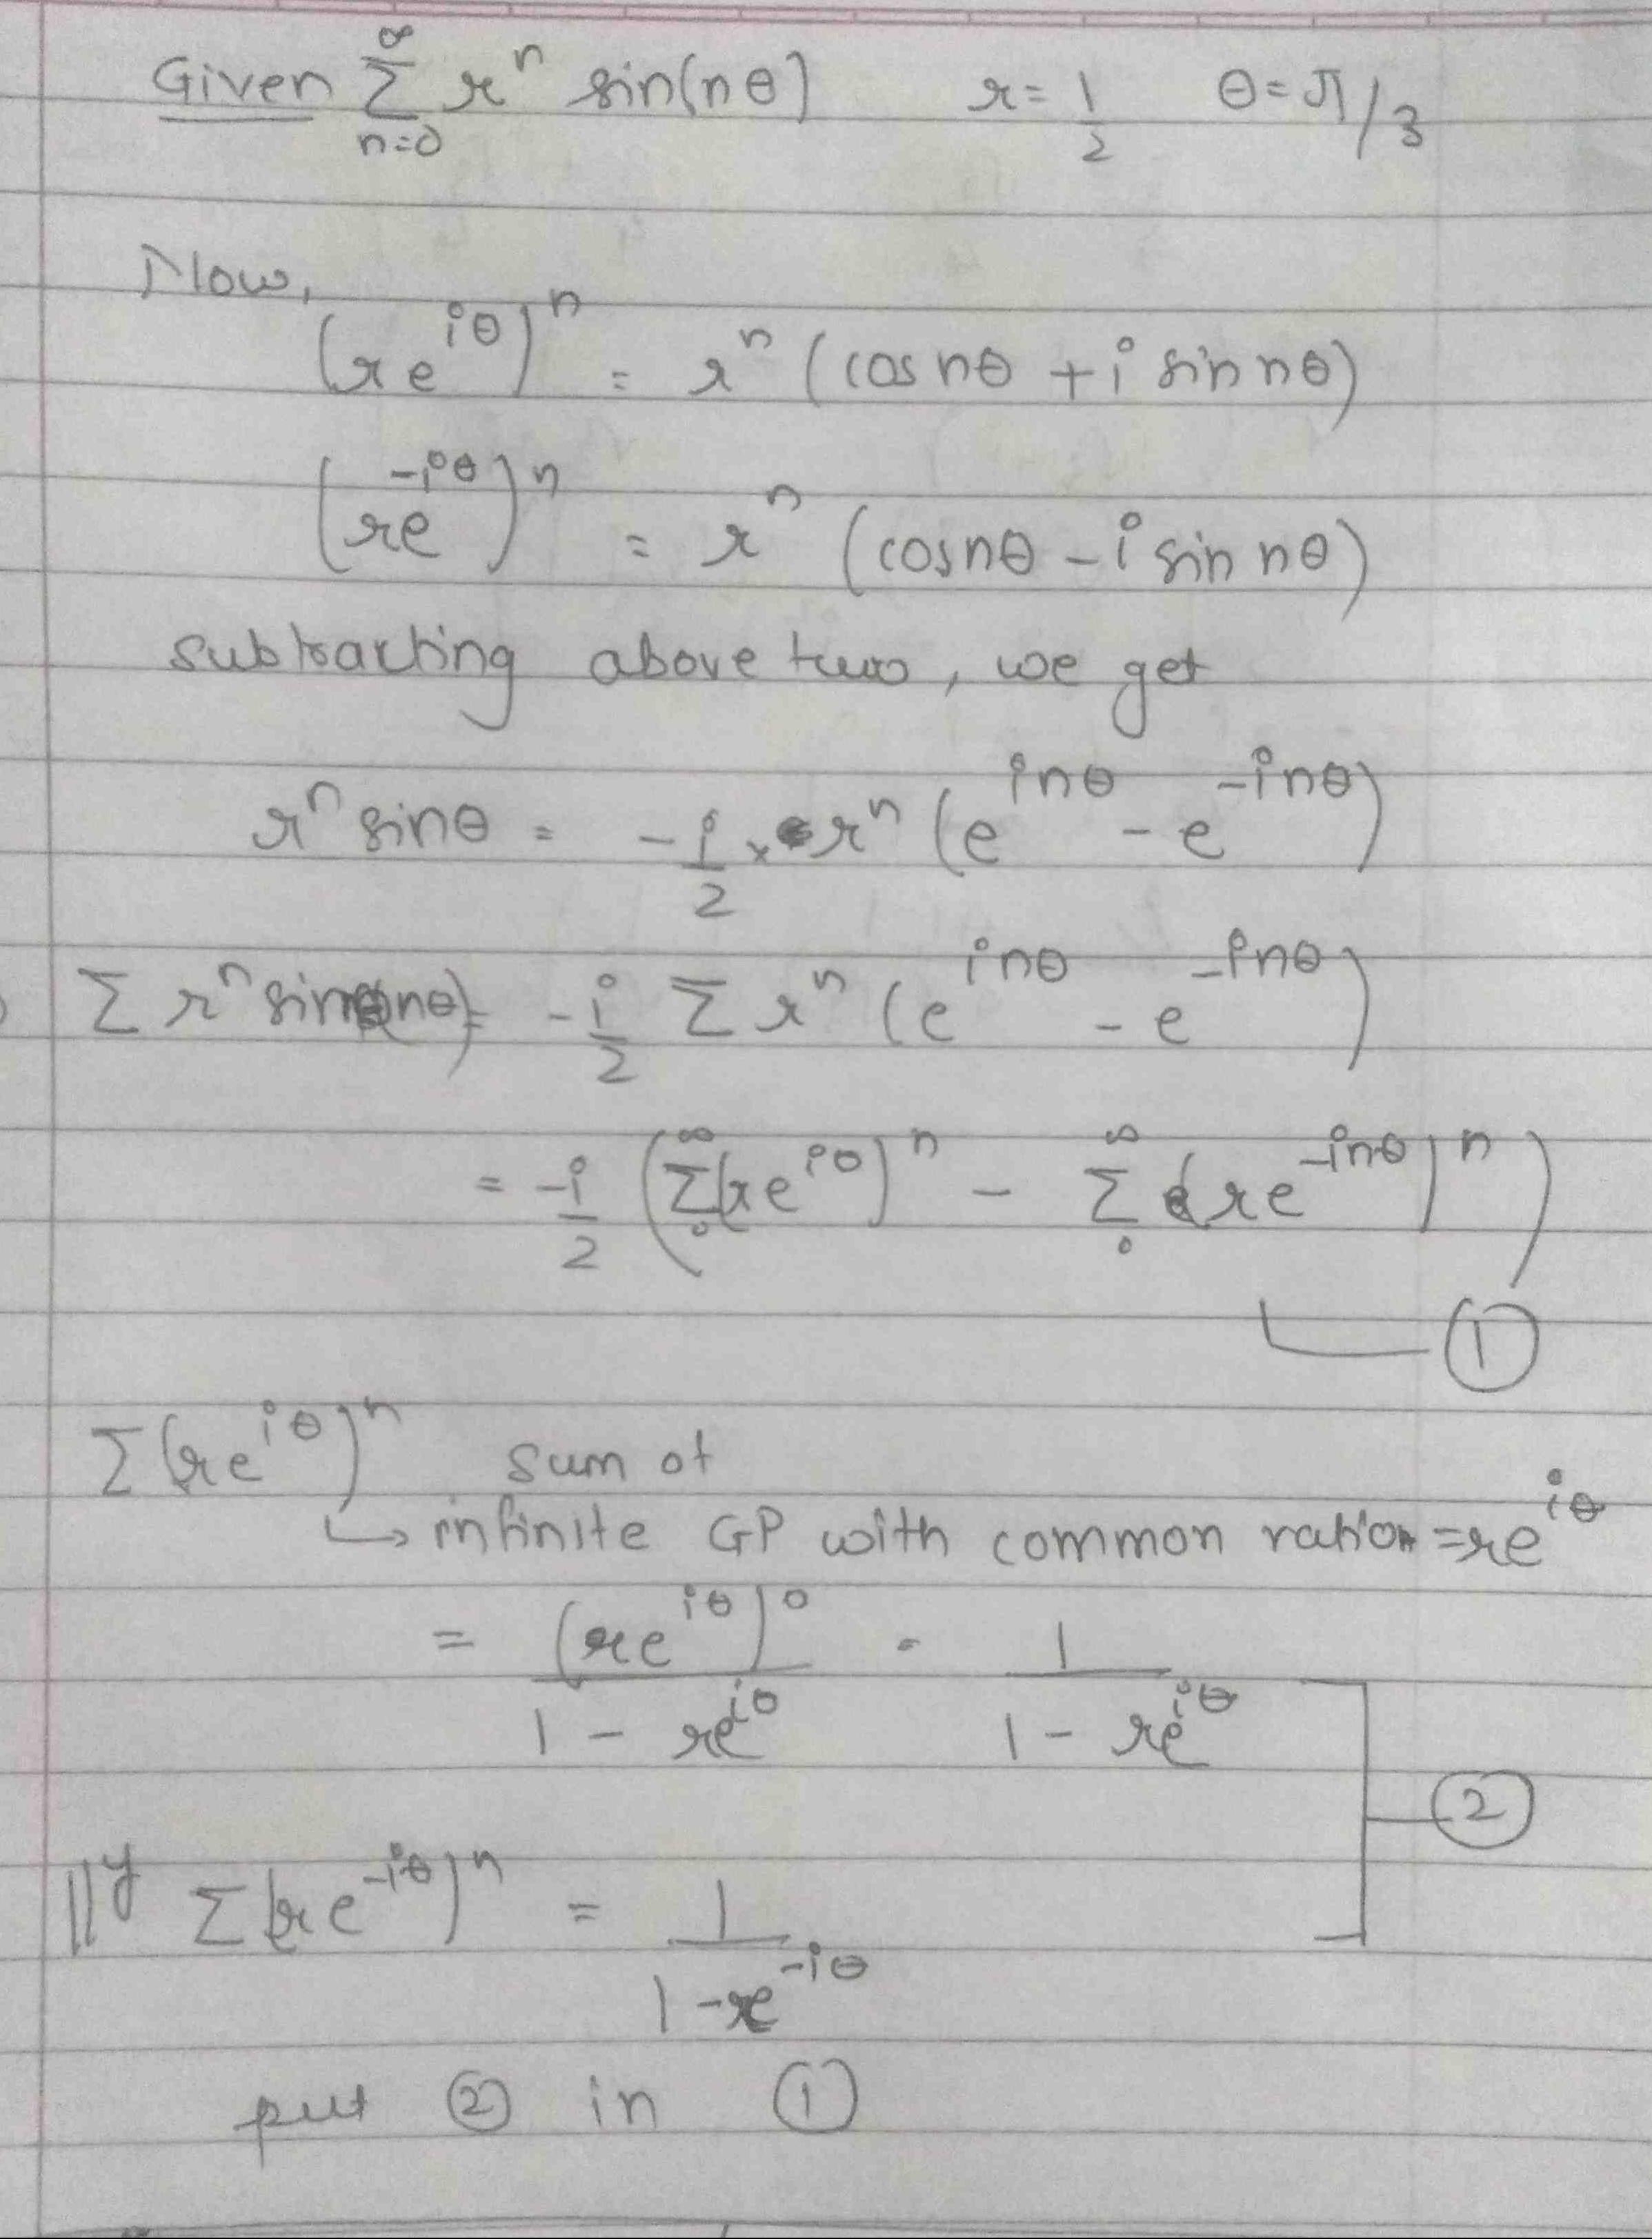 Given ∞Σn=0 rⁿ sin(nθ) r = 1/2 θ = π/3
Now,
(re^{iθ})ⁿ = rⁿ (cos nθ + i sin nθ)
(re^{-iθ})ⁿ = rⁿ (cosnθ - i sin nθ)
subtracting above two, we get
rⁿ sinθ = -i/2 × rⁿ (e^{inθ} - e^{-inθ})
Σ rⁿ sin(nθ) = -i/2 Σ rⁿ (e^{inθ} - e^{-inθ})
= -i/2 (∞Σ0 (re^{iθ})ⁿ - ∞Σ0 (re^{-inθ})ⁿ)
①
Σ(re^{iθ})ⁿ sum of
↳ infinite GP with common ratio = re^{iθ}
= (re^{iθ})⁰ / (1 - re^{iθ}) = 1 / (1 - re^{iθ})
②
||ly Σ(re^{-iθ})ⁿ = 1 / (1 - re^{-iθ})
put ② in ①